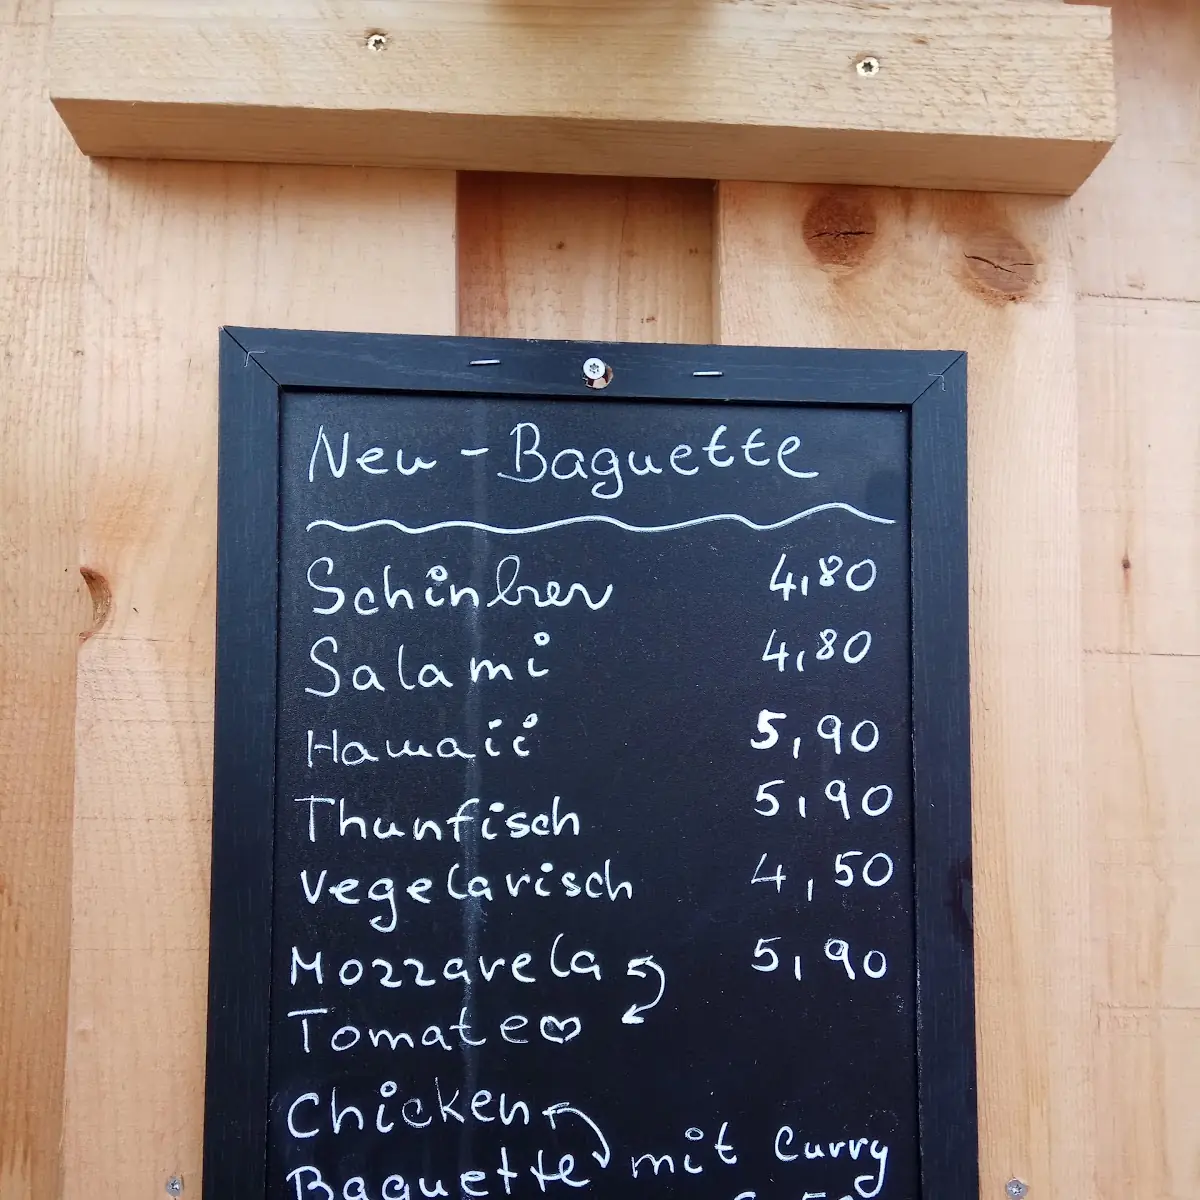 Neu - Baguette
Schinken 4,80
Salami 4,80
Hawaii 5,90
Thunfisch 5,90
Vegetarisch 4,50
Mozzarela 5,90
Tomate
Chicken
Baguette mit Curry